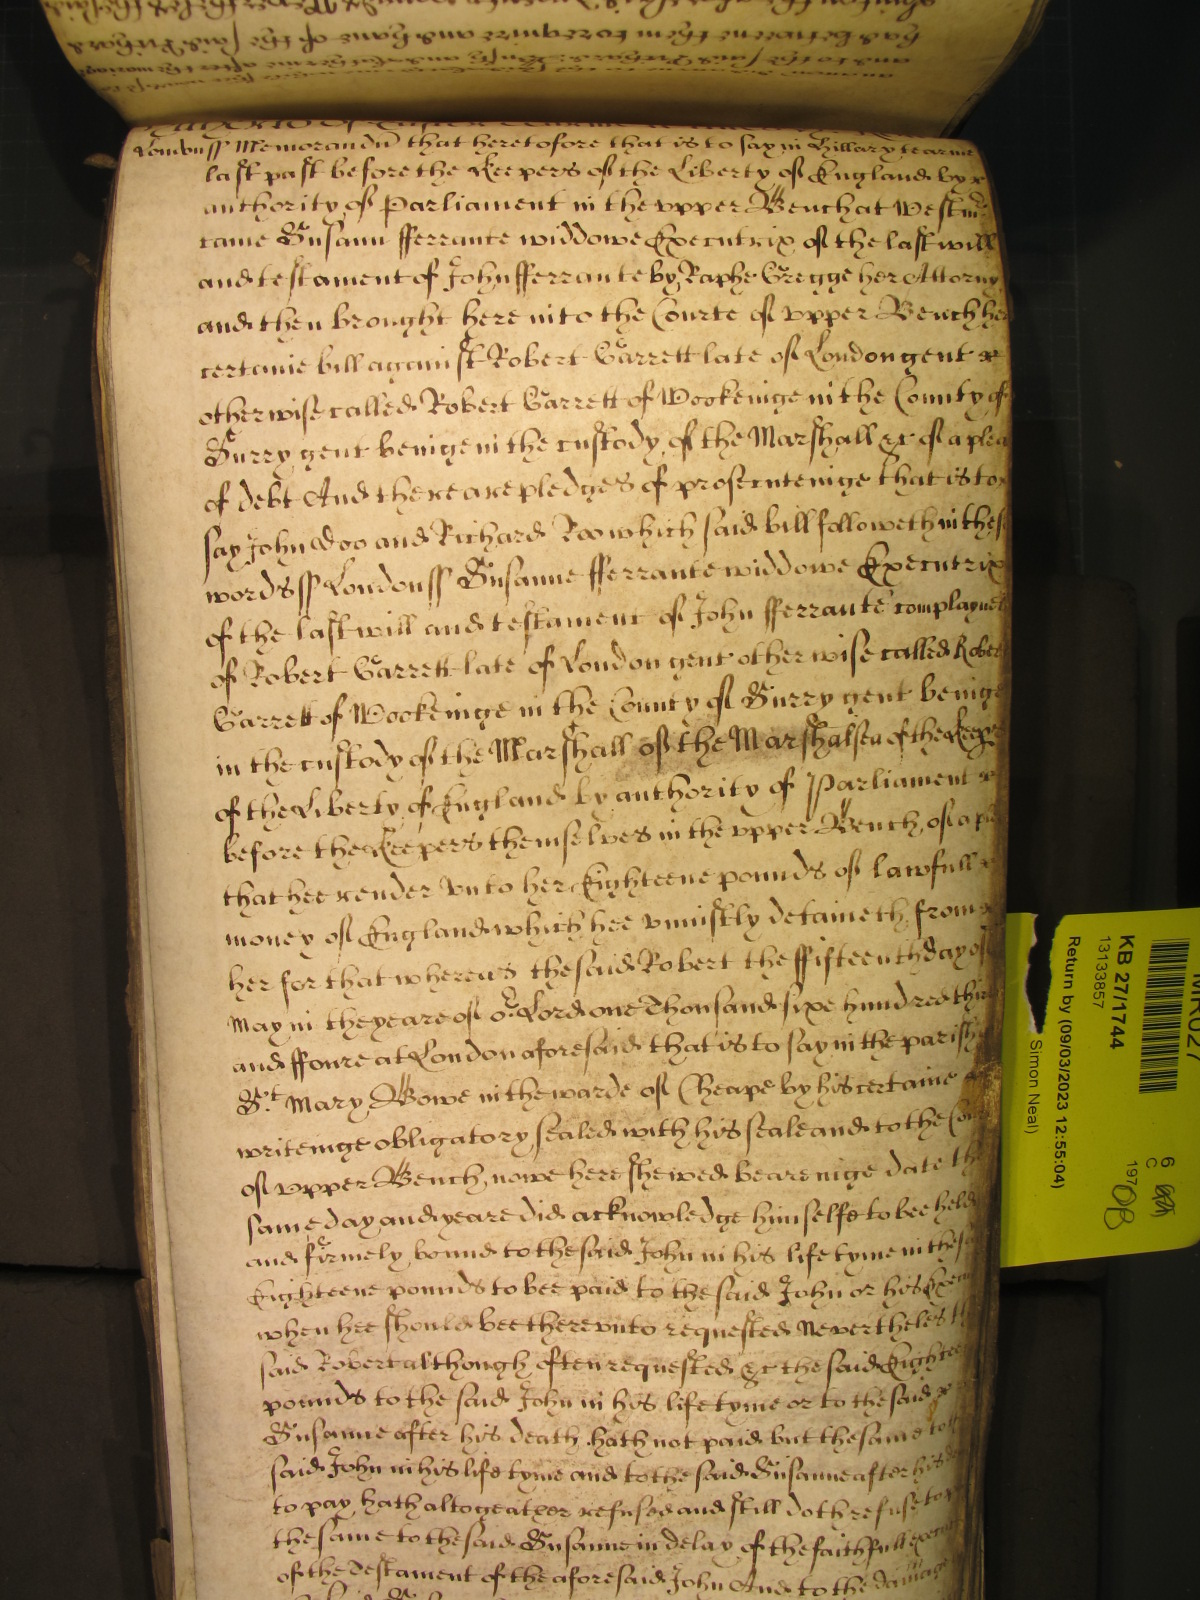 Londonss Memorandu that heretofore that is to say in Hillary tearme
last past before the Keepers of the Liberty of England by
authority of Parliament in the vpper Bench at Westm
came Susann fferrante widdowe Executrix of the last will
and testament of John fferrante by Raphe Gregge her Attorny
and then brought here into the Courte of vpper Bench
certaine bill against Robert Garrett late of London gent
otherwise called Robert Garrett of Wookeinge in the County of
Surry gent beinge in the custody of the Marshall &c of a plea
of debt And there are pledges of prosecuteinge that is to
say John Doo and Richard Roo which said bill followeth in these
words ss Londonss Susanne fferrante widdowe Executrix
of the last will and testament of John fferrante complayneth
of Robert Garrett late of London gent otherwise called Robert
Garrett of Wookeinge in the County of Surry gent beinge
in the custody of the Marshall of the Marshalsea of the Keepers
of the Liberty of England by authority of Parliament
before the Keepers themselves in the vpper Bench of a
that hee render vnto her Eighteene pounds of lawfull
money of England which hee vniustly detaineth from
her for that whereas the said Robert the ffifteenth day of
May in the yeare of or Lord one Thousand sixe hundred
and ffoure at London aforesaid that is to say in the parish
St Mary Bowe in the warde of Cheape by his certaine
writeinge obligatory sealed with his seale and to the
of vpper Bench nowe here shewed beareinge date
same day and yeare did acknowledge himselfe to bee held
and firmely bound to the said John in his life tyme in the
Eighteene pounds to bee paid to the said John or his
when hee should bee therevnto requested Neverthelesse
said Robert although often requested &c the said Eighteene
pounds to the said John in his life tyme or to the said
Susanne after his death hath not paid but the same to
said John in his life tyme and to the said Susanne after his
to pay hath altogeather refused and still doth refuse to
the same to the said Susanne in delay of the faithfull
of the testament of the aforesaid John And to the damage
KB 27/1744
13133857
Return by (09/03/2023 12:55:04)
Simon Neal)
6
C